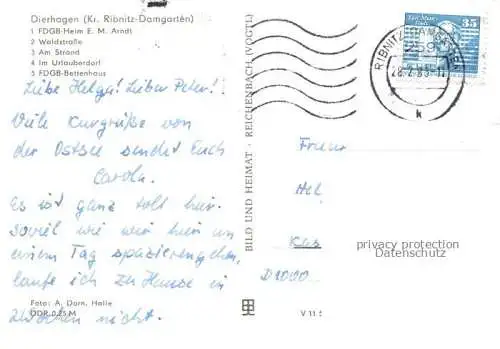 Dierhagen (Kr. Ribnitz-Damgarten)
1 FDGB-Heim E. M. Arndt
2 Waldstraße
3 Am Strand
4 Im Urlauberdorf
5 FDGB-Bettenhaus
Liebe Helga! Lieber Peter!
Viele Kurgrüße von
der Ostsee sendet Euch
Carola.
Es ist ganz toll hier.
Soviel wie wir hier an
einem Tag spazierengehen,
laufe ich zu Hause in
Wochen nicht.
Foto: A. Darn, Halle
DDR 0,25 M
BILD UND HEIMAT · REICHENBACH (VOGTL)
V 11
35
RIBNITZ-DAMGARTEN
259
k
Hel
D 1000
privacy protection
Datenschutz